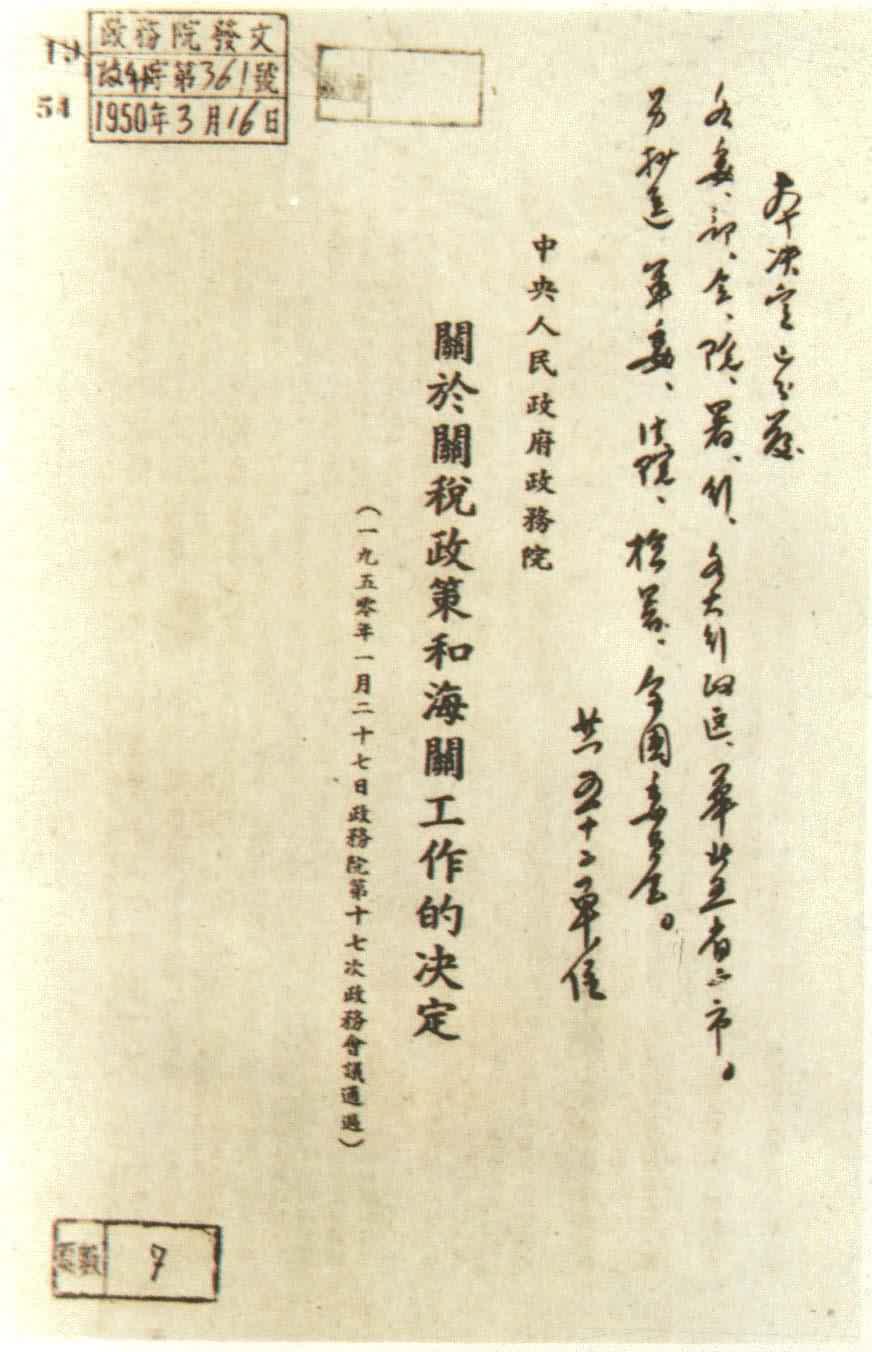 政務院發文
政 字第361號
1950年3月16日
19
54
本決定已分發
各委、部、會、院、署、行、各大行政區、華北五省二市。
另抄送 軍委、法院、檢署、全國委員會。
共五十二單位
中央人民政府政務院
關於關稅政策和海關工作的決定
（一九五零年一月二十七日政務院第十七次政務會議通過）
頁數 7